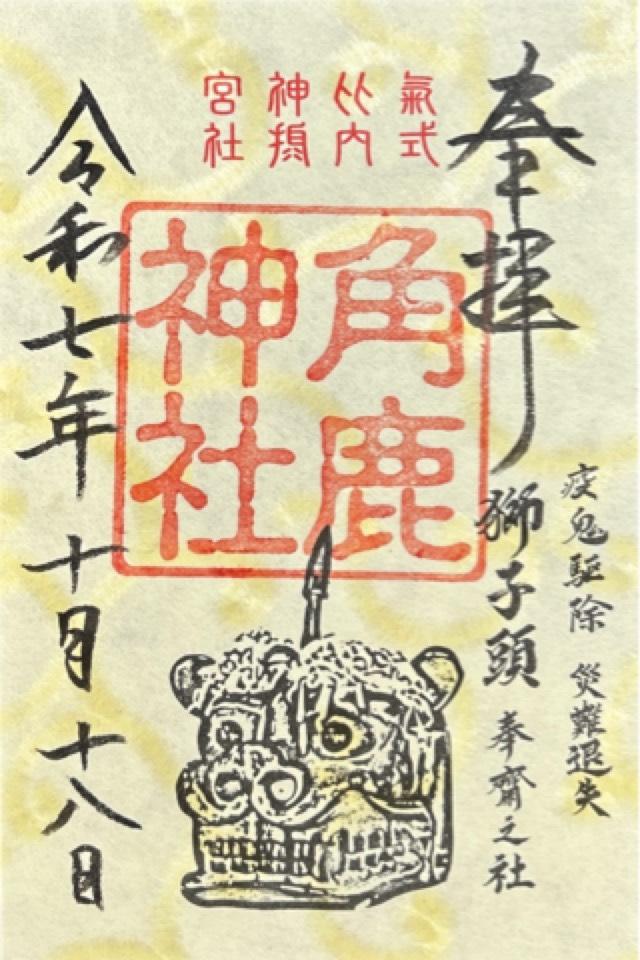 奉拝
疫鬼驅除 災難退失
獅子頭 奉齋之社
氣比神宮
式内摂社
角鹿
神社
令和七年 十月 十八日